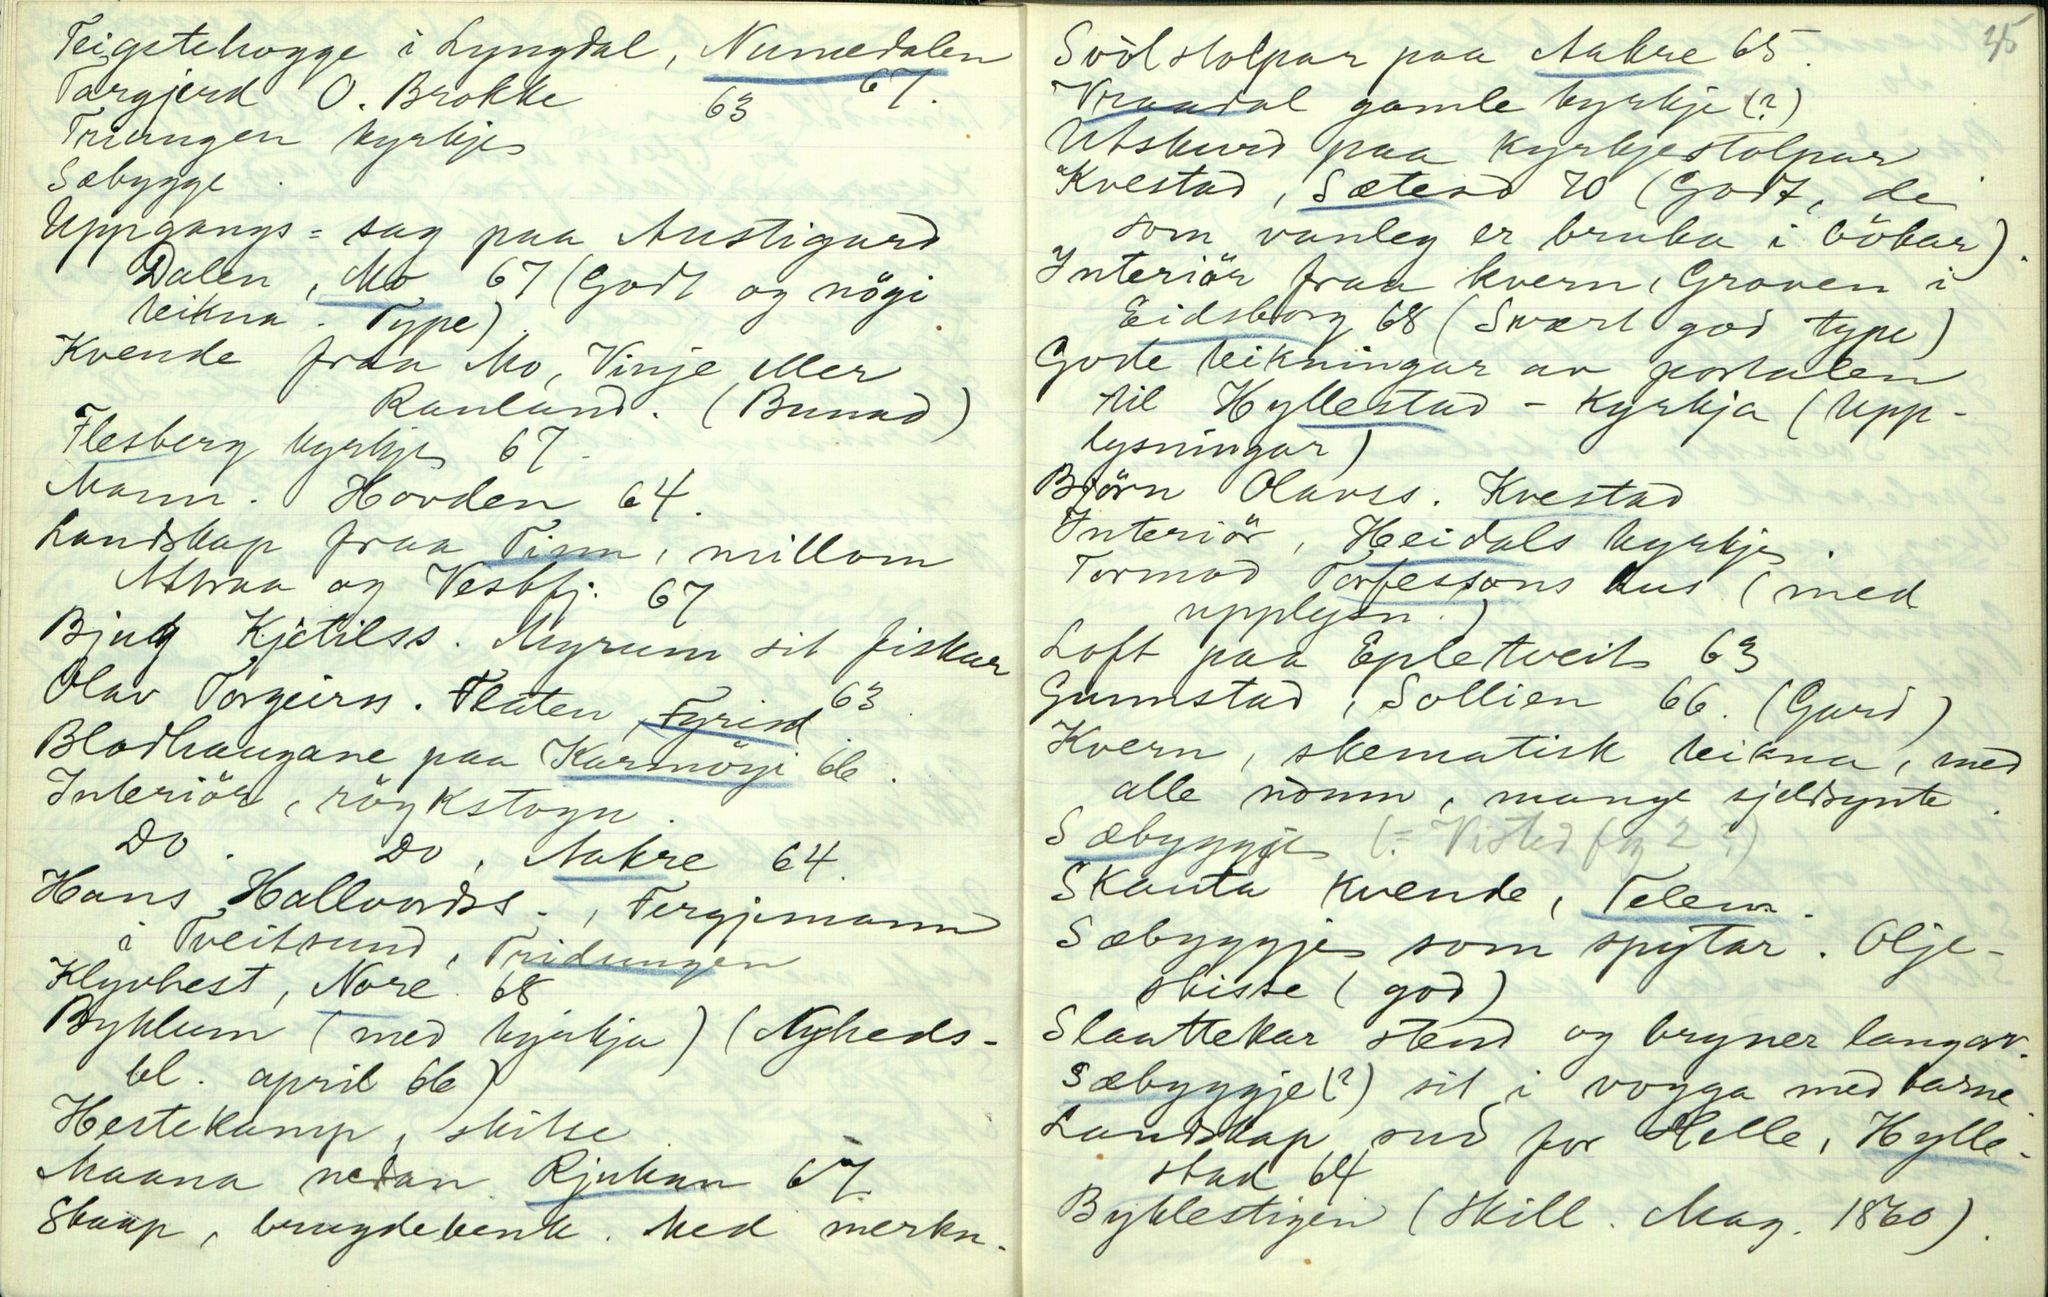 Teigstehogge i Lyngdal, Numedalen
67.
Targjerd O. Brokke 63
Triungen kyrkje
Sæbygge.
Uppgangs=sag paa Austigard
Dalen, Mo 67 (Godt og nögi
teikna. Type)
Kvende fraa Mo, Vinje eller
Rauland. (Bunad)
Flesberg kyrkje 67.
Mann. Hovden 64.
Landskap fraa Tinn, millom
Attraa og Vestfj. 67
Bjug Kjetilss. Myrum sit fiskar
63.
Olav Torgeirss. Flaten, Fyrisd.
Blodhaugane paa Karmöyi 66.
Interiör, röykstogu.
Do. Do, Aakre 64.
Hans Hallvordss., Fergjemann
i Tveitsund, Tridungen
Klyvhest, Nore 68
Byklum (med kyrkja) (Nyheds-
bl. april 66)
Hestekamp, skitse
Maana nedan Rjukan 67.
Skaap, brugdebenk. Med merkn.
35
Svòlstolpar paa Aakre 65.
Vraadal gamle kyrkje (?)
Utskurd paa Kyrkjestolpar
Kvestad, Sætesd 70 (Godt, dei
som vanleg er bruka i bökar).
Interiör fraa kvern, Groven i
Eidsborg 68 (Svært god type)
Gode teikningar av portalen
til Hyllestad-Kyrkja (Upp-
lysningar)
Björn Olavss. Kvestad
Interiör, Heidals kyrkje.
Tormod Torfessons hus (med
upplysn.)
Loft paa Epletveit 63
Gunnstad, Sollien 66. (Gard)
Kvern, skematisk teikna, med
alle nòmn, mange sjeldsynte.
Sæbyggje (= Visted fig 2?)
Skauta kvende, Telem.
Sæbyggje som spytar. Olje-
skisse (god)
Slaattekar stend og bryner langorv.
Sæbyggje(?) sit i vogga med barne
Landskap sud for Helle, Hylle-
stad 64
Byklestigen (Skill. Mag. 1860).